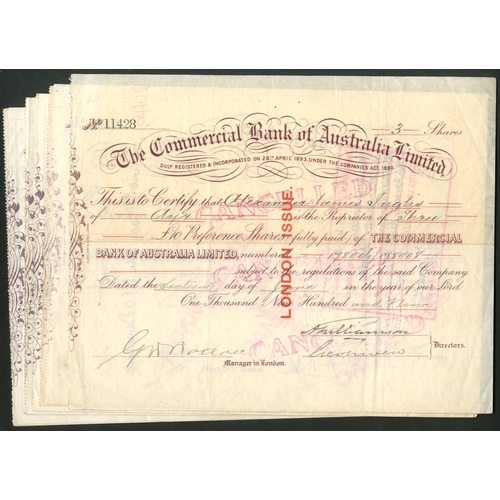 No 11428
3 Shares
The Commercial Bank of Australia Limited.
DULY REGISTERED & INCORPORATED ON 28TH APRIL 1893, UNDER THE COMPANIES ACT, 1890.
This is to Certify that Alexander James Inglis
of is the Proprietor of Three
£10 Preference Shares (fully paid) of THE COMMERCIAL
BANK OF AUSTRALIA LIMITED, numbered 178006/178008
subject to the regulations of the said Company
Dated the day of June in the year of our Lord
One Thousand Nine Hundred and Nine
Directors.
Manager in London.
LONDON ISSUE.
CANCELLED
CANCELLED